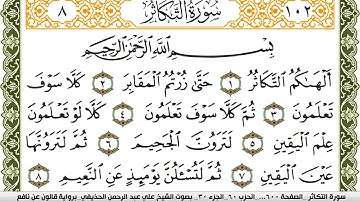 ٨ سُورَةُ التَّكَاثُرِ ١٠٢
بِسْمِ اللَّهِ الرَّحْمَٰنِ الرَّحِيمِ
أَلْهَاكُمُ التَّكَاثُرُ ١ حَتَّىٰ زُرْتُمُ الْمَقَابِرَ ٢ كَلَّا سَوْفَ
تَعْلَمُونَ ٣ ثُمَّ كَلَّا سَوْفَ تَعْلَمُونَ ٤ كَلَّا لَوْ تَعْلَمُونَ
عِلْمَ الْيَقِينِ ٥ لَتَرَوُنَّ الْجَحِيمَ ٦ ثُمَّ لَتَرَوُنَّهَا
عَيْنَ الْيَقِينِ ٧ ثُمَّ لَتُسْأَلُنَّ يَوْمَئِذٍ عَنِ النَّعِيمِ ٨
سورة التكاثر _الصفحة ٦٠٠... _ الحزب ٦٠_ الجزء ٣٠ _ بصوت الشيخ علي عبد الرحمن الحذيفي_ برواية قالون عن نافع